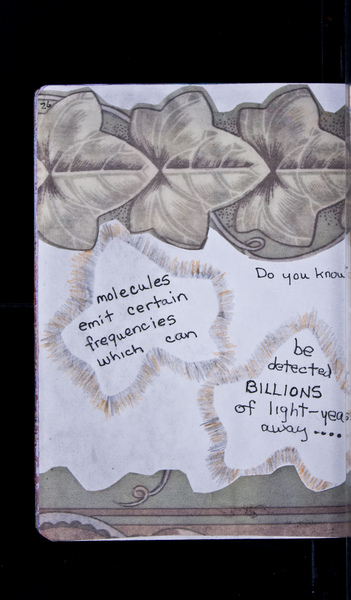 26
Do you know
molecules
emit certain
frequencies
which can
be
detected
BILLIONS
of light-yea
away ....